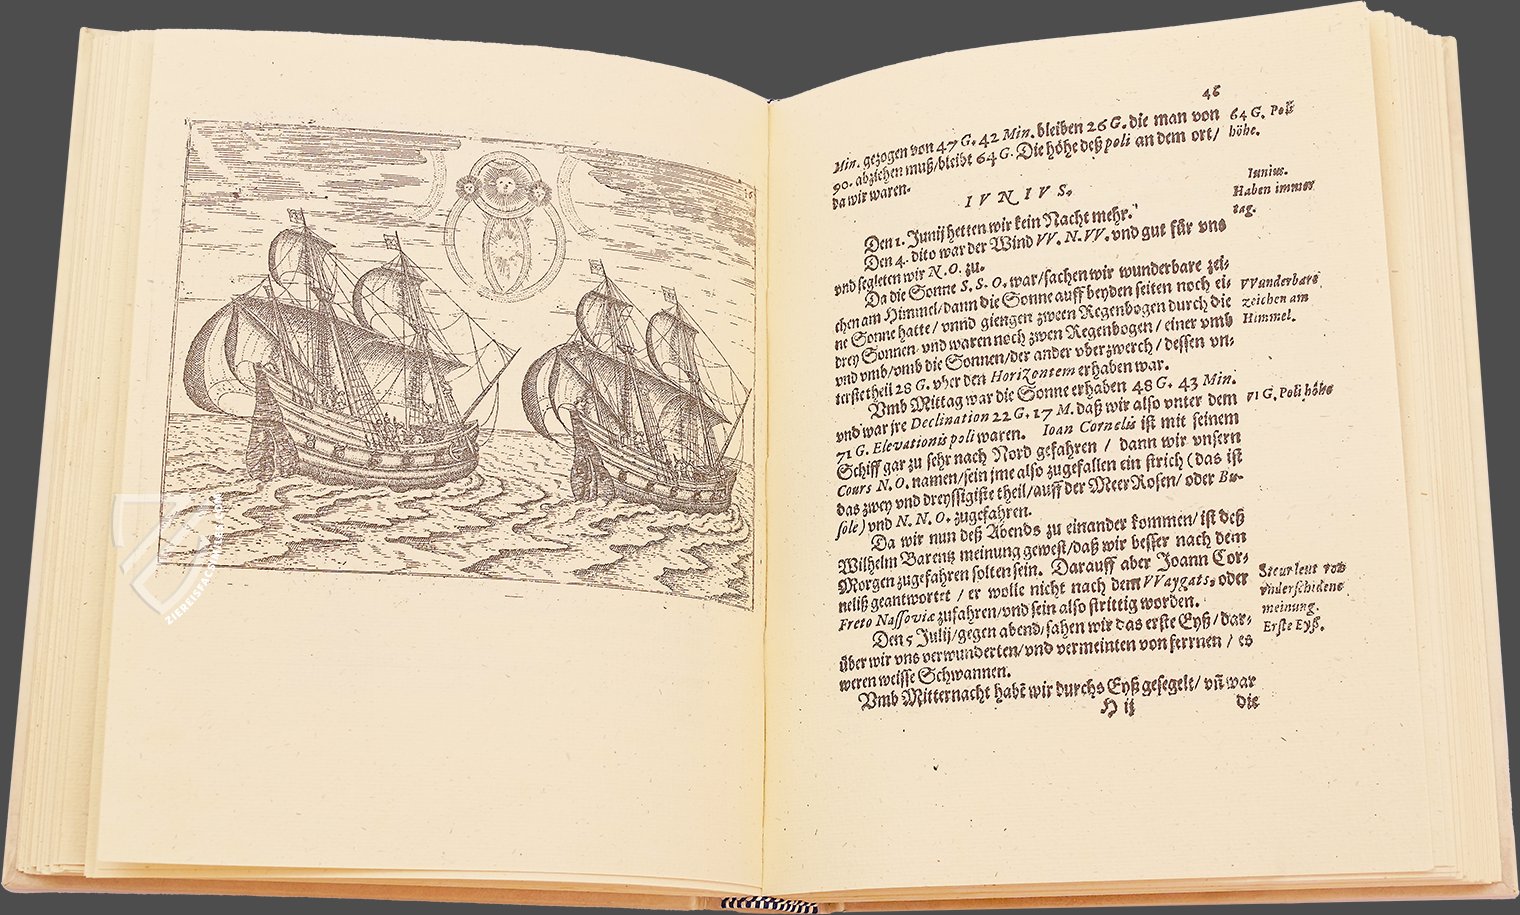 16
ZIEREIS FACSIMILES
46
Min. gezogen von 47 G. 42 Min. bleiben 26 G. die man von
90. abziehen muß/bleibt 64 G. Die höhe deß poli an dem ort/
da wir waren.
64 G. Poli
höhe.
IVNIVS.
Iunius.
Haben immer
tag.
Den 1. Junij hetten wir kein Nacht mehr.
Den 4. dito war der Wind VV. N. VV. vnd gut für vns
vnd segleten wir N. O. zu.
Da die Sonne S. S. O. war/sachen wir wunderbare zei-
chen am Himmel/dann die Sonne auff beyden seiten noch ei-
ne Sonne hatte/ vnnd giengen zween Regenbogen durch die
drey Sonnen, vnd waren noch zwen Regenbogen/ einer vmb
vnd vmb/vmb die Sonnen/der ander vberzwerch/ dessen vn-
terste theil 28 G. vber den Horizontem erhaben war.
VVunderbare
zeichen am
Himmel.
Vmb Mittag war die Sonne erhaben 48 G. 43 Min.
vnd war jre Declination 22 G. 17 M. daß wir also vnter dem
71 G. Elevationis poli waren. Ioan Cornelis ist mit seinem
Schiff gar zu sehr nach Nord gefahren / dann wir vnsern
Cours N. O. namen/sein jme also zugefallen ein strich (das ist
das zwey vnd dreyssigiste theil/auff der Meer Rosen/ oder Bu-
sole) vnd N. N. O. zugefahren.
71 G. Poli höhe
Da wir nun deß Abends zu einander kommen/ ist deß
Wilhelm Barentz meinung gewest/daß wir besser nach dem
Morgen zugefahren solten sein. Darauff aber Joann Cor-
neliß geantwortet / er wolle nicht nach dem VVaygats, oder
Freto Nassoviæ zufahren/vnd sein also strittig worden.
Steurleut von
vnderschidene
meinung.
Erste Eyß.
Den 5 Julij/gegen abend/sahen wir das erste Eyß/ dar-
über wir vns verwunderten/vnd vermeinten von ferrnen / es
weren weisse Schwannen.
Vmb Mitternacht habẽ wir durchs Eyß gesegelt/ vñ war
H ij
die